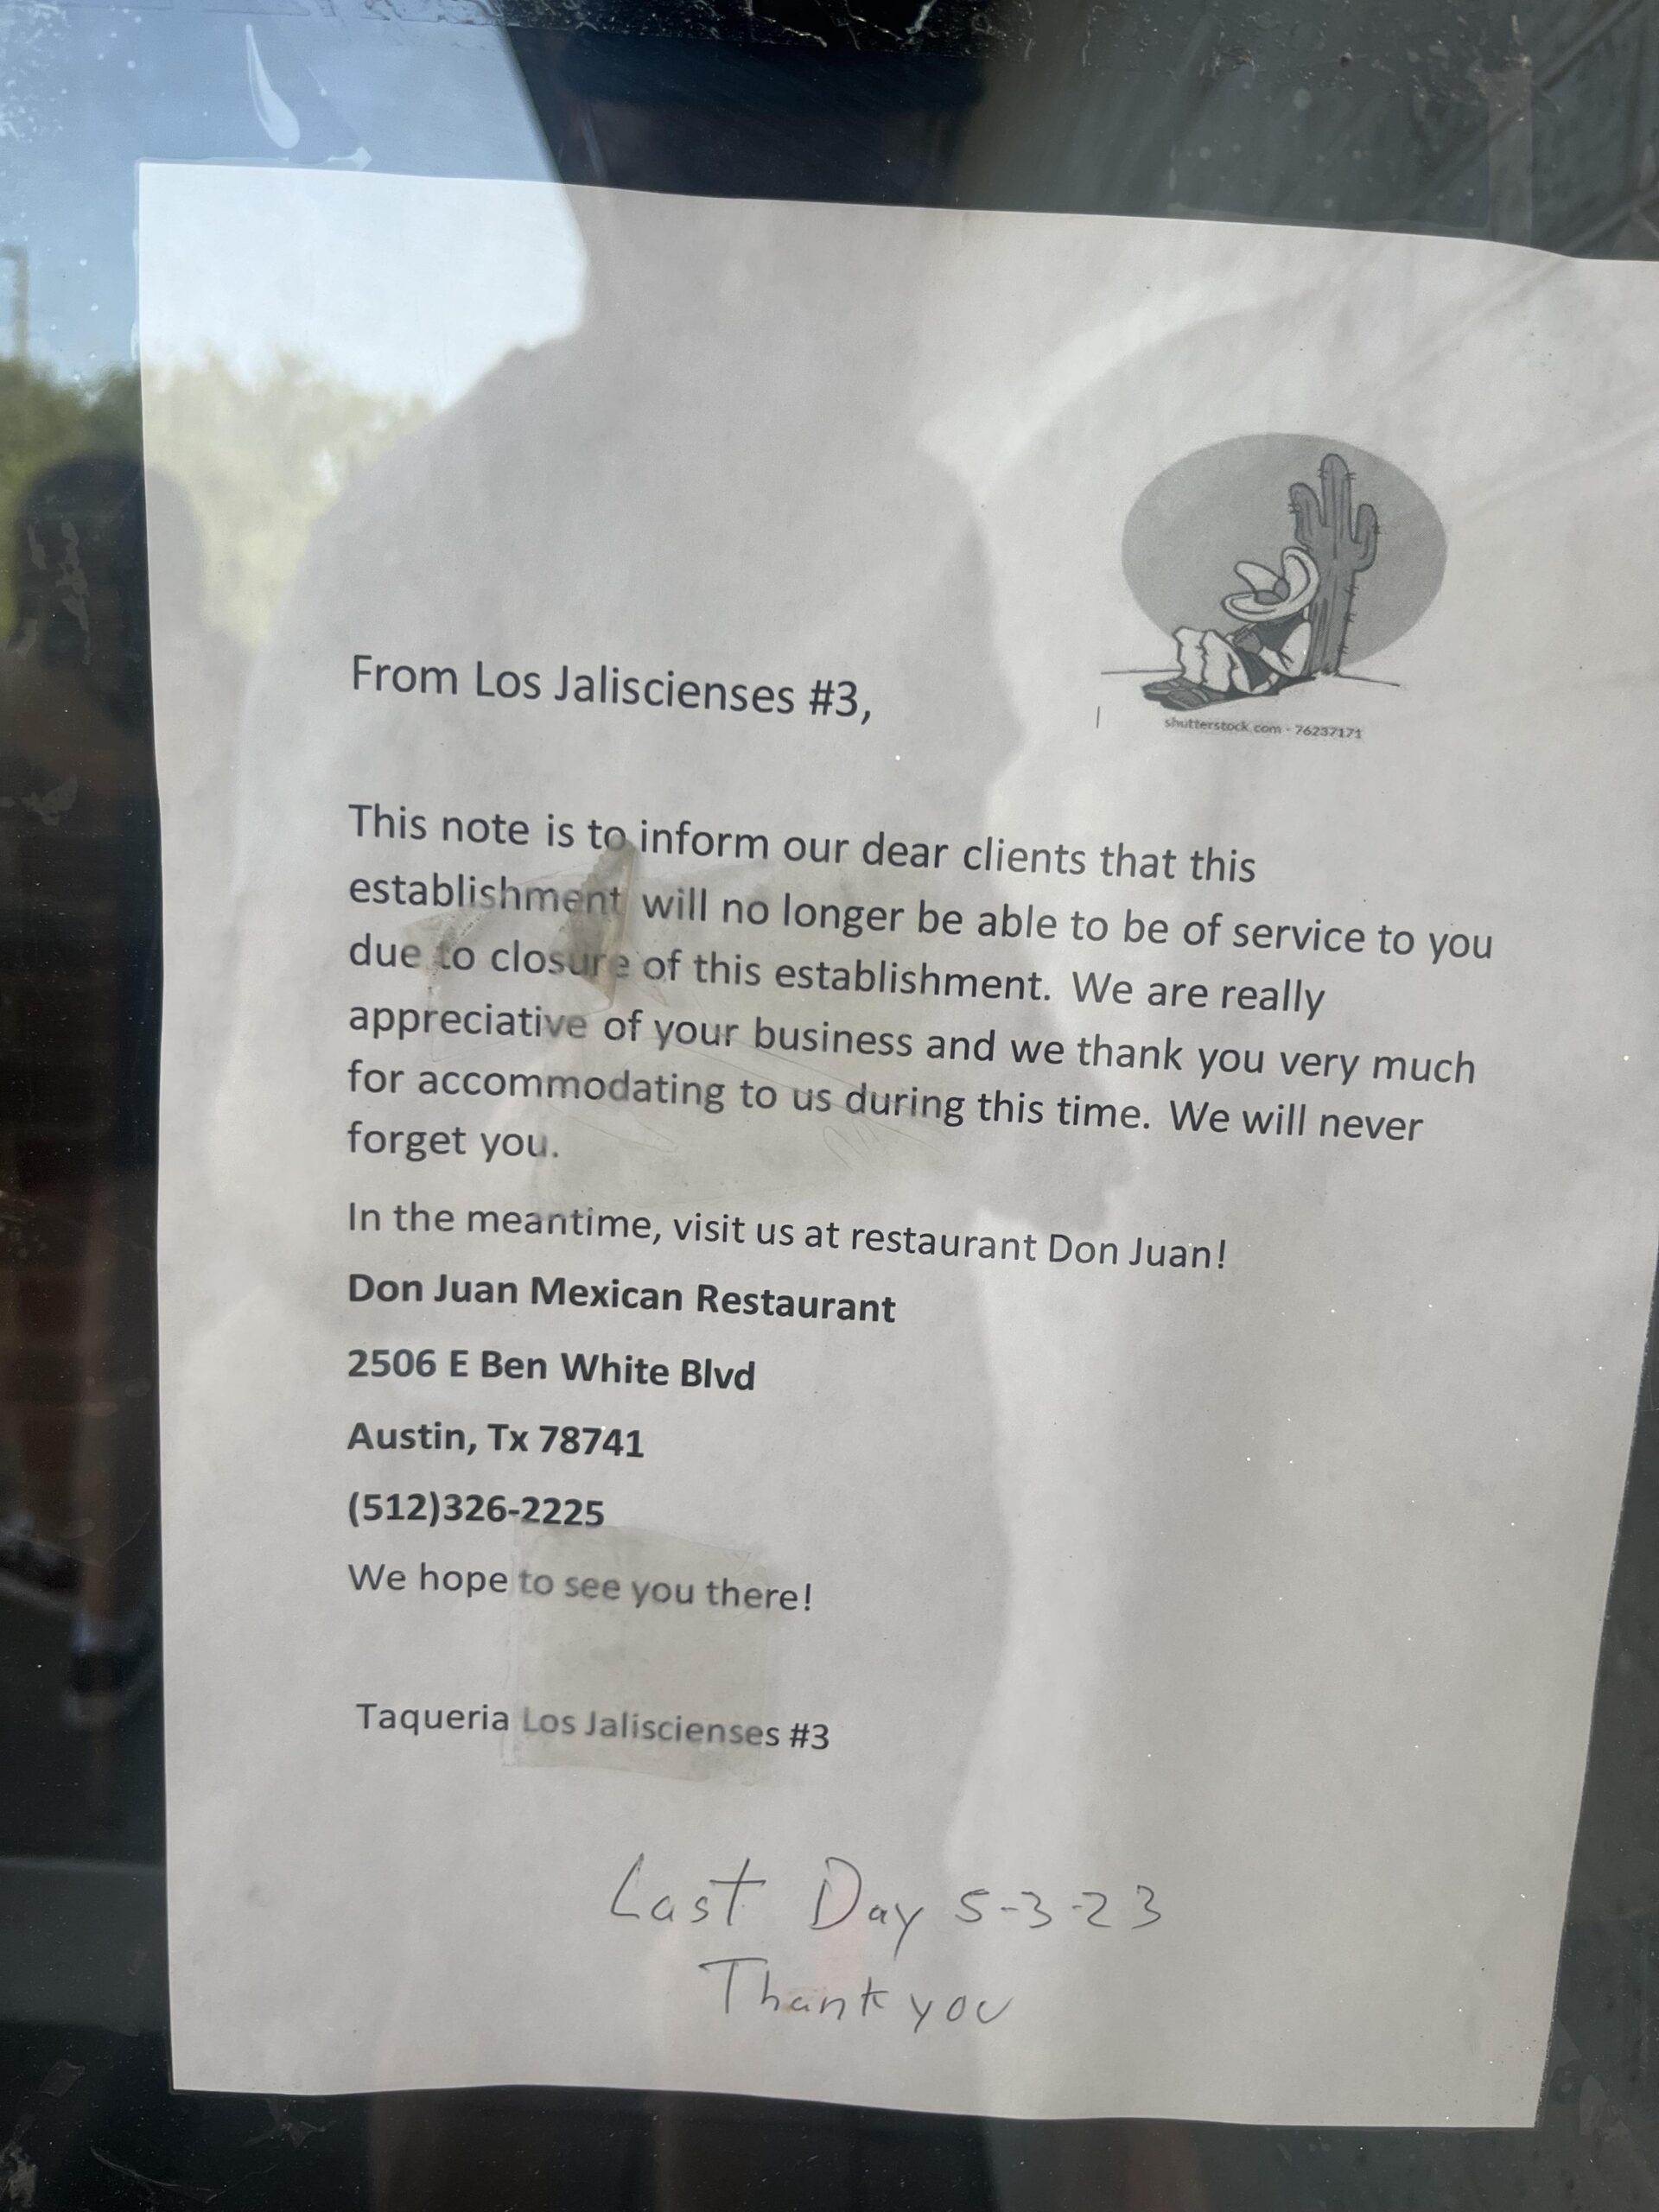 shutterstock.com · 76237171
From Los Jaliscienses #3,
This note is to inform our dear clients that this
establishment will no longer be able to be of service to you
due to closure of this establishment. We are really
appreciative of your business and we thank you very much
for accommodating to us during this time. We will never
forget you.
In the meantime, visit us at restaurant Don Juan!
Don Juan Mexican Restaurant
2506 E Ben White Blvd
Austin, Tx 78741
(512)326-2225
We hope to see you there!
Taqueria Los Jaliscienses #3
Last Day 5-3-23
Thank you